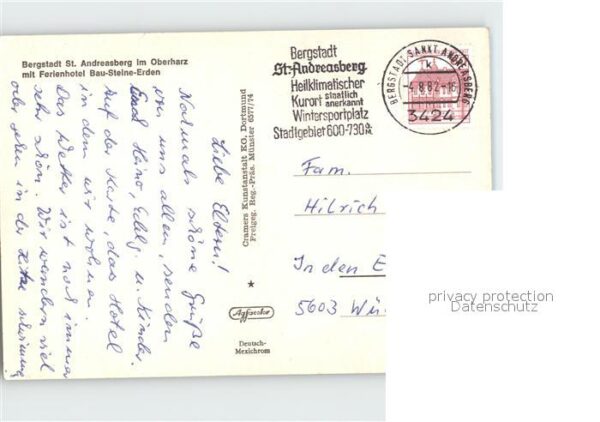 Bergstadt St. Andreasberg im Oberharz
mit Ferienhotel Bau-Steine-Erden
Liebe Eltern!
Nochmals schöne Grüße
von uns allen, senden
Euch Heino, u. Kinder.
Auf der Karte, das Hotel
in dem wir wohnen.
Das Wetter ist noch immer
sehr schön. Wir wandern viel
oder gehen in der schwimm
Cramers Kunstanstalt KG, Dortmund
Freigeg. Reg.-Präs. Münster 6577/74
*
Agfacolor
Deutsch-
Mexichrom
Bergstadt
St. Andreasberg
Heilklimatischer
Kurort staatlich
anerkannt
Wintersportplatz
Stadtgebiet 600-730 m
BERGSTADT SANKT ANDREASBERG
k
-4.8.82-16
3424
Fam.
Hilrich
In den E
5603 Wü
privacy protection
Datenschutz